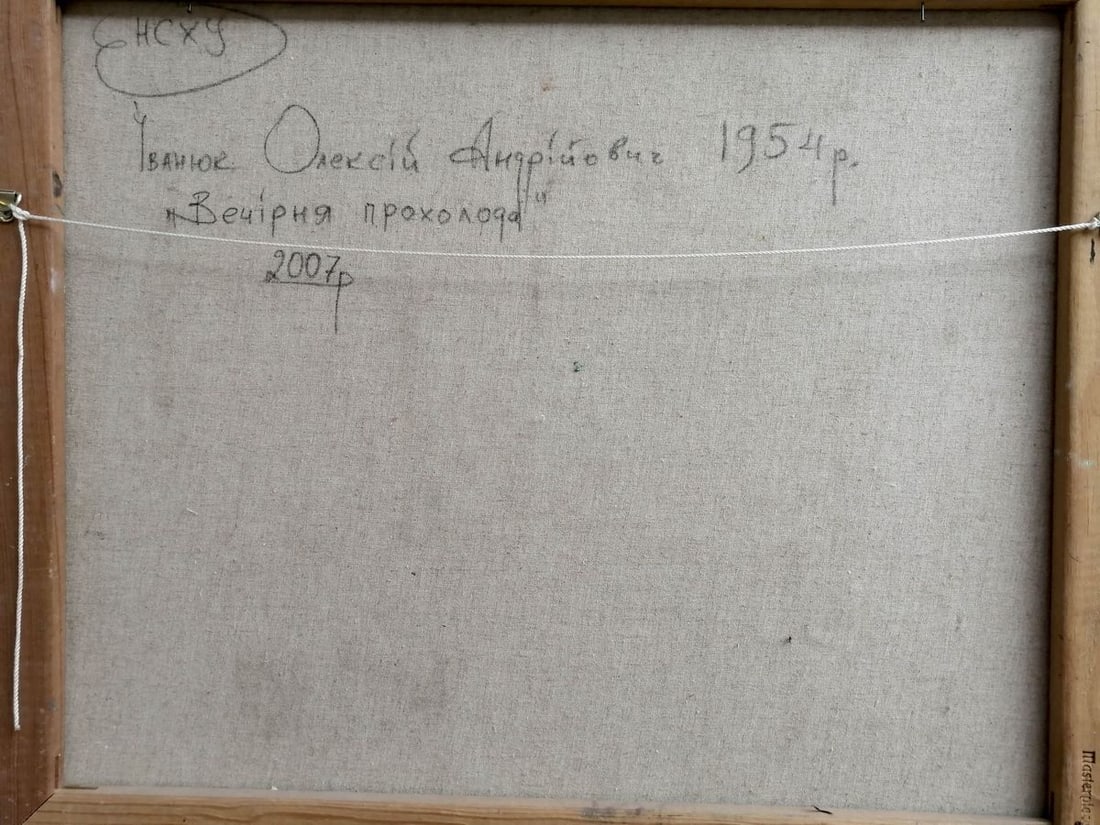 НСХУ
Іванюк Олексій Андрійович 1954р.
"Вечірня прохолода"
2007р